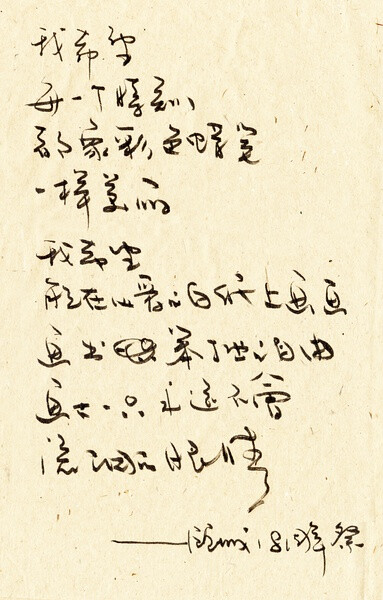 我希望
每一个時刻
都象彩色蜡笔
一样美丽
我希望
能在心爱的白纸上画画
画出笨拙的自由
画上一只永遠不會
流泪的眼睛
——顾城